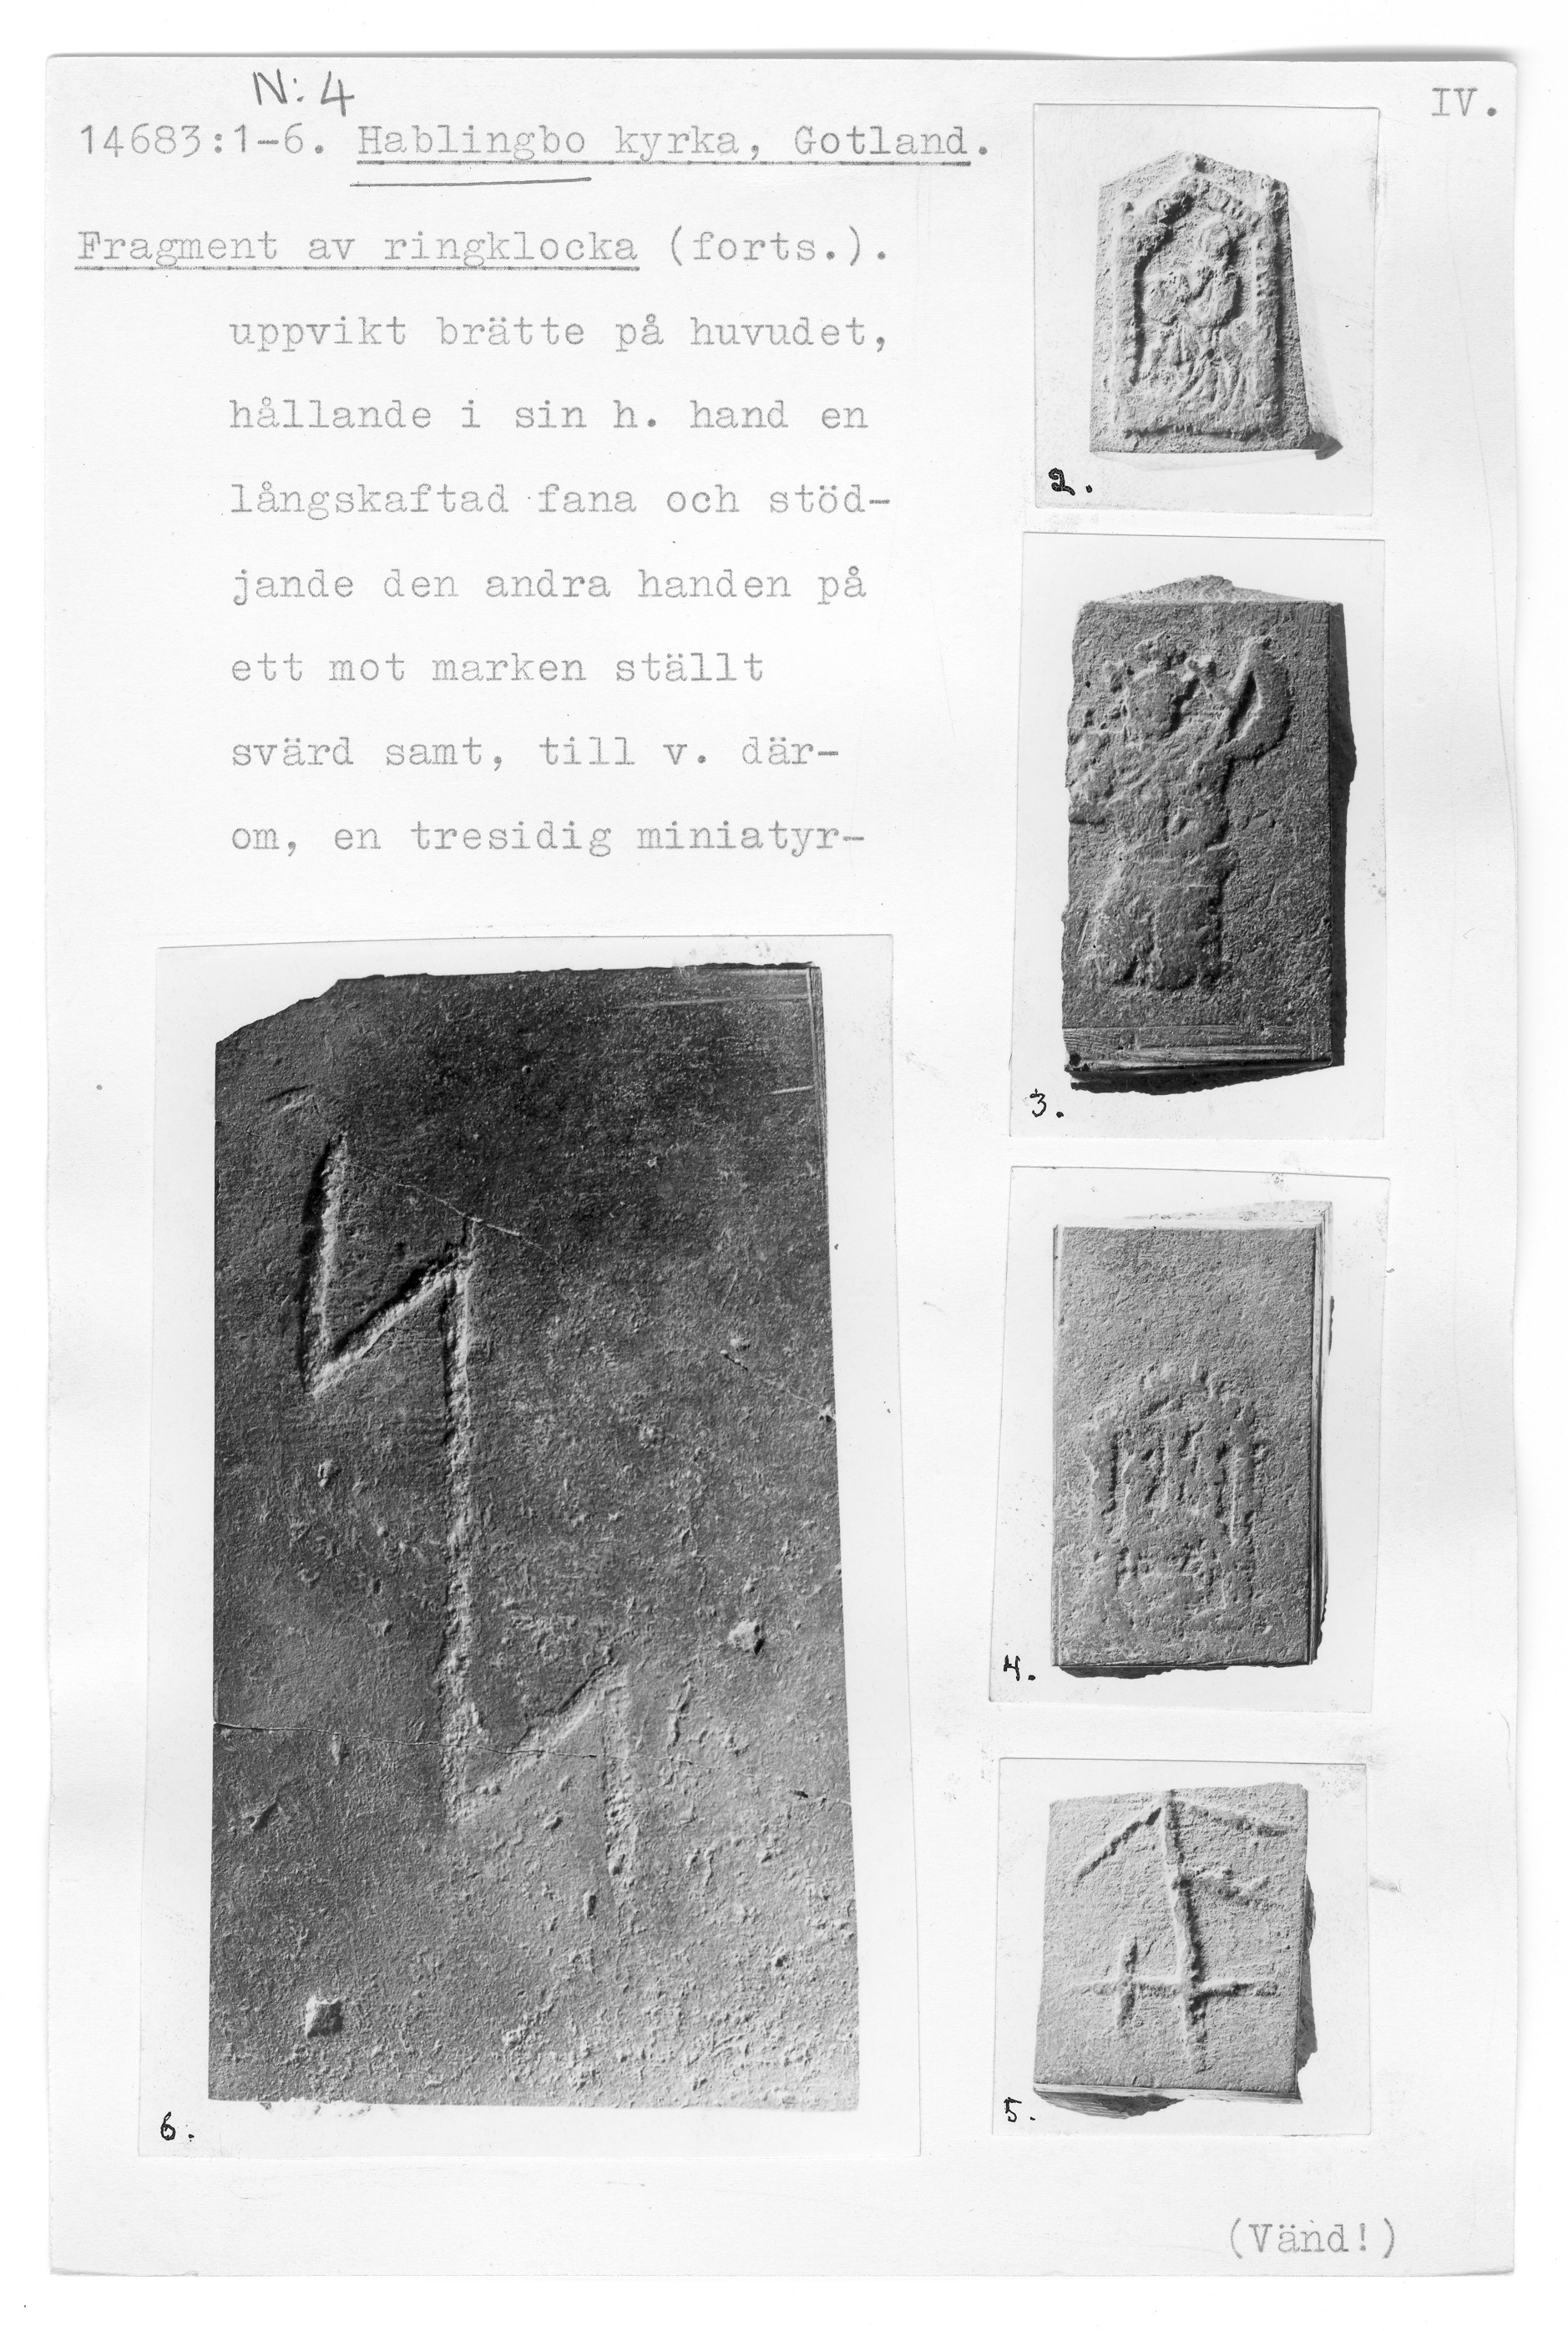 N:4
IV.
14683:1-6. Hablingbo kyrka, Gotland.
Fragment av ringklocka (forts.).
uppvikt brätte på huvudet,
hållande i sin h. hand en
långskaftad fana och stöd-
jande den andra handen på
ett mot marken ställt
svärd samt, till v. där-
om, en tresidig miniatyr-
2.
3.
4.
5.
6.
(Vänd!)